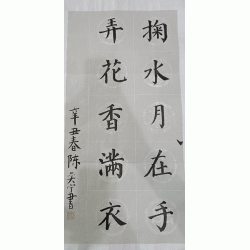 掬水月在手
弄花香满衣
辛丑春陈